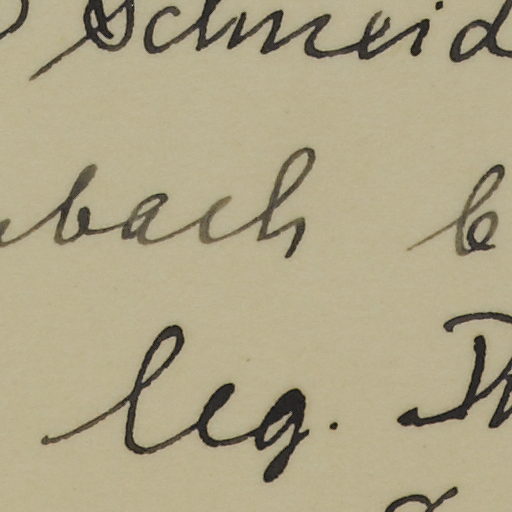 Schneid
bach b
leg.